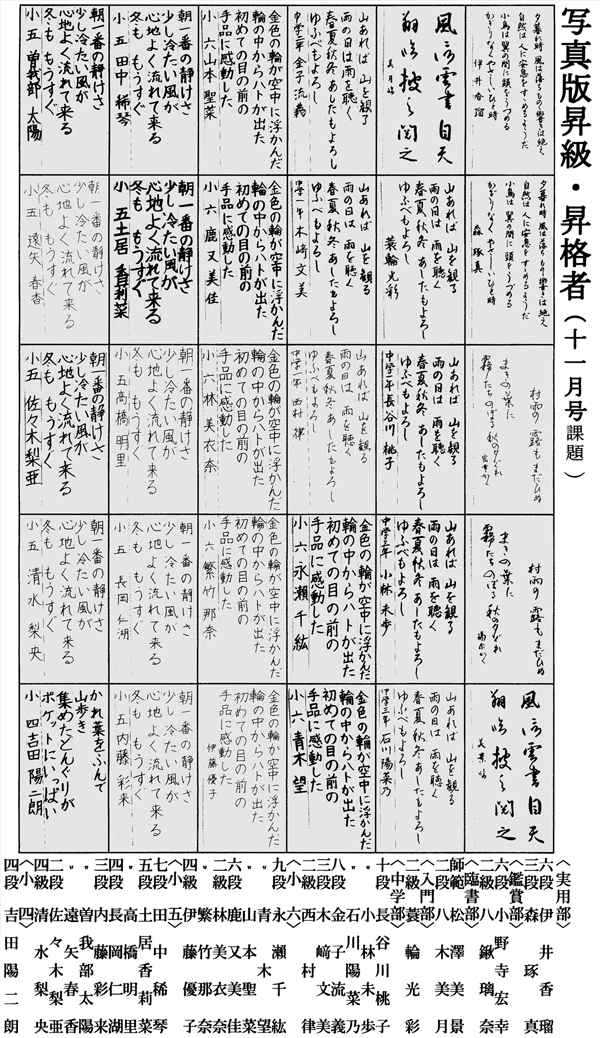 写真版昇級・昇格者(十一月号課題)
夕暮れ時 風は落ちもの響きは絶え
自然は人に安息をすすめるようだ
小鳥は翼の間に頭をうづめる
かぎりなくやさしいひと時
伊井香瑠
風流雲書自天
美月
山あれば 山を観る
雨の日は 雨を聴く
春夏秋冬 あしたもよろし
ゆふべもよろし
中学二年 金子流義
金色の輪が空中に浮かんだ
輪の中からハトが出た
初めての目の前の
手品に感動した
小六 山本聖菜
朝一番の静けさ
少し冷たい風が
心地よく流れて来る
冬も もうすぐ
小五 田中稀琴
朝一番の静けさ
少し冷たい風が
心地よく流れてる
冬も もうすぐ
小五 曽我部太陽
夕暮れ時 風は落ちもの響きは絶え
自然は 人に安息をすすめるようだ
小鳥は 翼の間に頭をうづめる
かぎりなくやさしいひと時
森 琢真
山あれば 山を観る
雨の日は 雨を聴く
春夏秋冬 あしたもよろし
ゆふべもよろし
蓑輪光彩
山あれば 山を観る
雨の日は 雨を聴く
春夏秋冬 あしたもよろし
ゆふべもよろし
中学一年 木崎文美
金色の輪が空中に浮かんだ
輪の中からハトが出た
初めての目の前の
手品に感動した
小六 鹿又美佳
朝一番の静けさ
少し冷たい風が
心地よく流れて来る
冬も もうすぐ
小五 土居香莉菜
朝一番の静けさ
少し冷たい風が
心地よく流れて来る
冬も もうすぐ
小五 遠矢春香
村雨の 露もまだひぬ
まきの葉に
霧たちのぼる 秋の夕ぐれ
山あれば 山を観る
雨の日は 雨を聴く
春夏秋冬 あしたもよろし
ゆふべもよろし
中学一年 長谷川桃子
山あれば 山を観る
雨の日は 雨を聴く
春夏秋冬 あしたもよろし
ゆふべもよろし
中学一年 西村律
金色の輪が空中に浮かんだ
輪の中からハトが出た
初めての目の前の
手品に感動した
小六 林美衣奈
朝一番の静けさ
少し冷たい風が
心地よく流れて来る
冬も もうすぐ
小五 高橋明里
朝一番の静けさ
少し冷たい風が
心地よく流れて来る
冬も もうすぐ
小五 佐々木梨亜
村雨の 露もまだひぬ
まきの葉に
霧たちのぼる 秋の夕ぐれ
山あれば 山を観る
雨の日は 雨を聴く
春夏秋冬 あしたもよろし
ゆふべもよろし
中学三年 小林未歩
金色の輪が空中に浮かんだ
輪の中からハトが出た
初めての目の前の
手品に感動した
小六 永瀬千紘
金色の輪が空中に浮かんだ
輪の中からハトが出た
初めての目の前の
手品に感動した
小六 繁竹那奈
朝一番の静けさ
少し冷たい風が
心地よく流れて来る
冬も もうすぐ
小五 長岡仁湖
朝一番の静けさ
少し冷たい風が
心地よく流れて来る
冬も もうすぐ
小五 清水梨央
風流雲書自天
美景
山あれば 山を観る
雨の日は 雨を聴く
春夏秋冬 あしたもよろし
ゆふべもよろし
中学三年 石川陽菜乃
金色の輪が空中に浮かんだ
輪の中からハトが出た
初めての目の前の
手品に感動した
小六 青木望
金色の輪が空中に浮かんだ
輪の中からハトが出た
初めての目の前の
手品に感動した
伊藤優子
朝一番の静けさ
少し冷たい風が
心地よく流れて来る
冬も もうすぐ
小五 内藤彩来
かれ葉をふんで
山歩き
集めたどんぐりが
ポケットにいっぱい
小四 吉田陽二朗
〈実用部〉
六段 伊井香瑠
三段 森琢真
〈鑑賞部〉
六段 小野寺宏幸
二級 小鍬璃奈
〈臨書部〉
師範 松澤美景
二段 八木美月
〈入門部〉
二級 蓑輪光彩
〈中学部〉
十段 長谷川桃子
〃 小林未歩
〃 石川陽菜乃
八段 金子流義
三段 木崎文美
二級 西村律
〈小六〉
九段 永瀬千紘
〃 青木望
〃 山本聖菜
六段 鹿又美佳
二級 林美衣奈
〃 繁竹那奈
四級 伊藤優子
〈小五〉
七段 田中稀琴
五段 土居香莉菜
〃 高橋明里
四段 長岡仁湖
三段 内藤彩来
〃 曽我部太陽
〃 遠矢春香
二段 佐々木梨亜
四級 清水梨央
〈小四〉
四段 吉田陽二朗